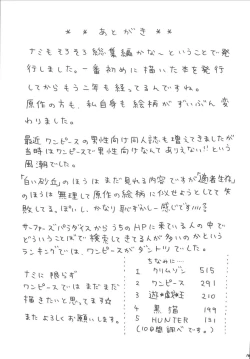 * * あとがき * *
ナミもそろそろ総集編かな〜ということで発
行しました。一番初めに描いた本を発行
してからもう二年も経ってるんですね。
原作の方も、私自身も絵柄がずいぶん変
わりました。
最近ワンピースの男性向け同人誌も増えてきましたが
当時はワンピースで男性向けなんてありえない!!という
風潮でした。
「白い砂丘」のほうはまだ見れる内容ですが「適者生存」
のほうは無理して原作の絵柄に似せようとして失
敗してる。ぽいし、かなり恥ずかしー感じです
サーファーズパラダイスからうちのHPに来ている人の中で
どういうことばで検索してきてる人が多いのかという
ランキングでは、ワンピースがダントツでした。
ナミに限らず
ワンピースではまだまだ
描きたいと思ってます
またよろしくお願いします。
ちなみに…
1 クリムゾン 515
2 ワンピース 291
3 遊戯王 210
4 黒猫 199
5 HUNTER 131
(100日間調べです。)